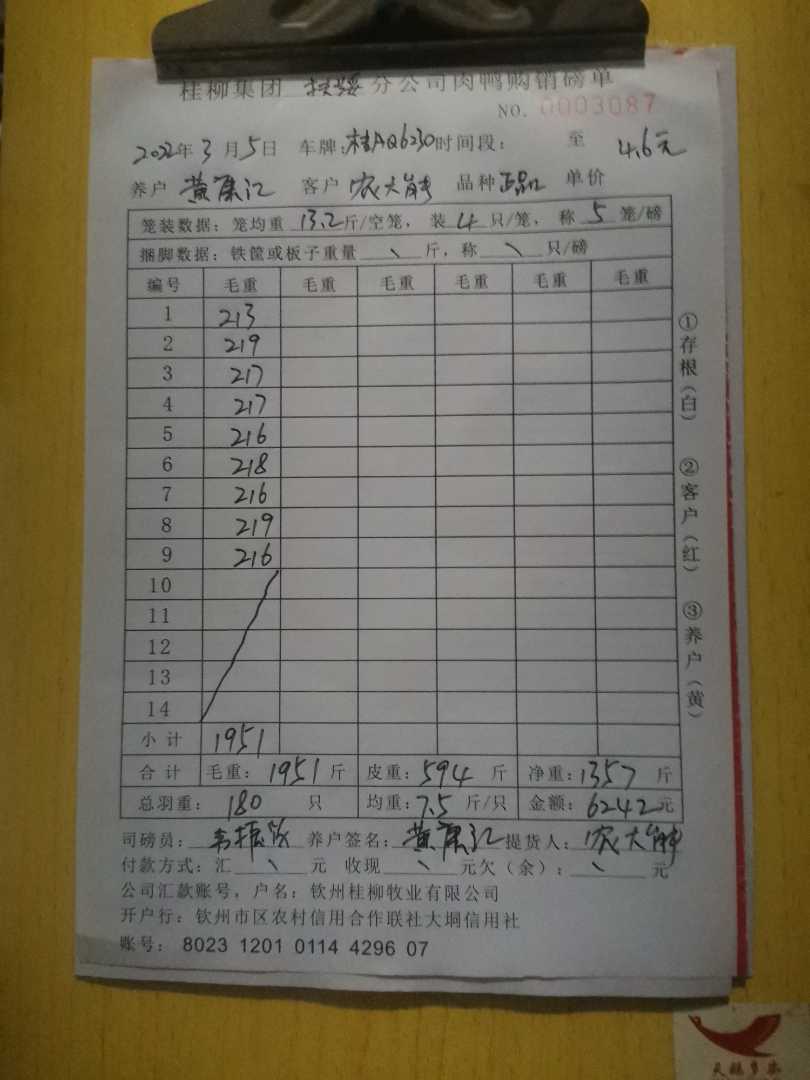 桂柳集团 扶绥 分公司肉鸭购销磅单
NO. 0003087
2022年3月5日 车牌:桂AQ6230时间段: 至
4.6元
养户 黄康江 客户 农大 品种 正品 单价
笼装数据: 笼均重 13.2斤/空笼, 装 4 只/笼, 称 5 笼/磅
捆脚数据: 铁筐或板子重量 \ 斤, 称 \ 只/磅
编号 毛重 毛重 毛重 毛重 毛重 毛重
1 213
2 219
3 217
4 217
5 216
6 218
7 216
8 219
9 216
10
11
12
13
14
小计 1951
合计 毛重: 1951 斤 皮重: 594 斤 净重: 1357 斤
总羽重: 180 只 均重: 7.5 斤/只 金额: 6242 元
司磅员: 养户签名: 黄康江 提货人: 农大
付款方式: 汇 \ 元 收现 \ 元欠(余): \ 元
公司汇款账号, 户名: 钦州桂柳牧业有限公司
开户行: 钦州市区农村信用合作联社大垌信用社
账号: 8023 1201 0114 4296 07
①存根(白) ②客户(红) ③养户(黄)